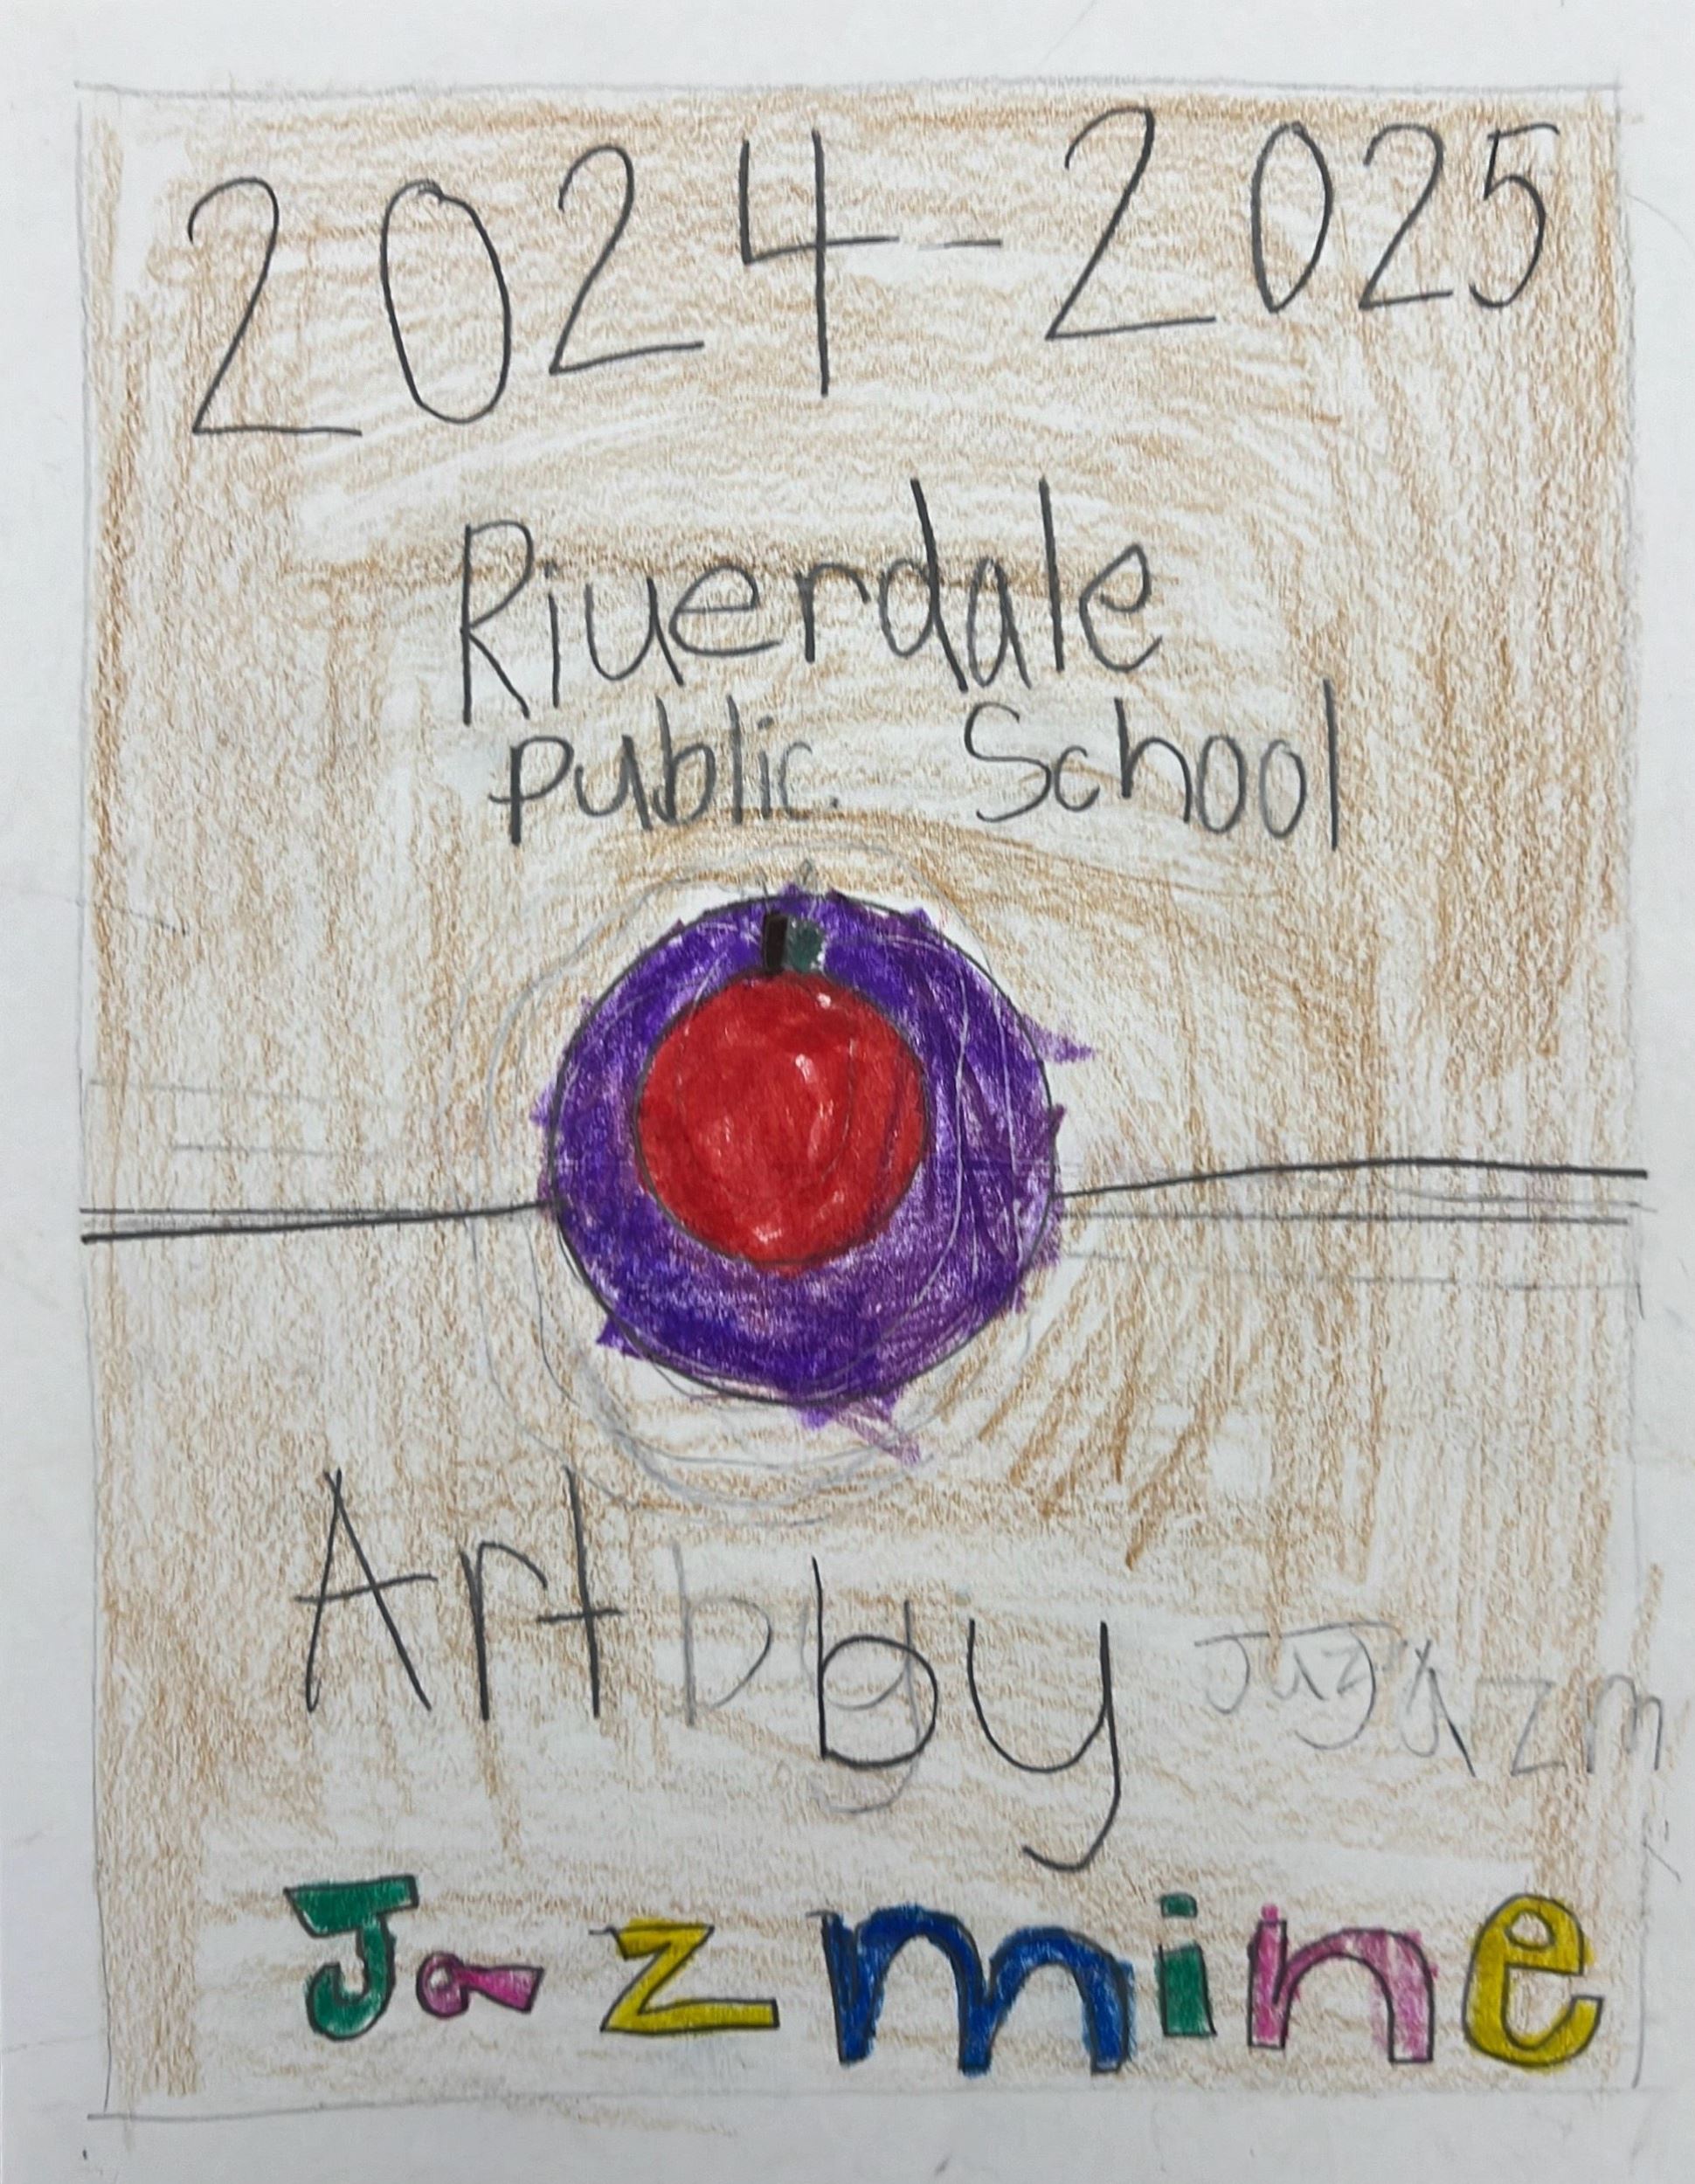 2024-2025
Riverdale
public School
Art by
Jazmine